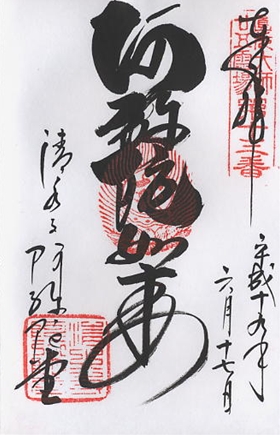 奉拝
平成十九年
六月十七日
阿弥陀如来
清水寺
阿弥陀堂